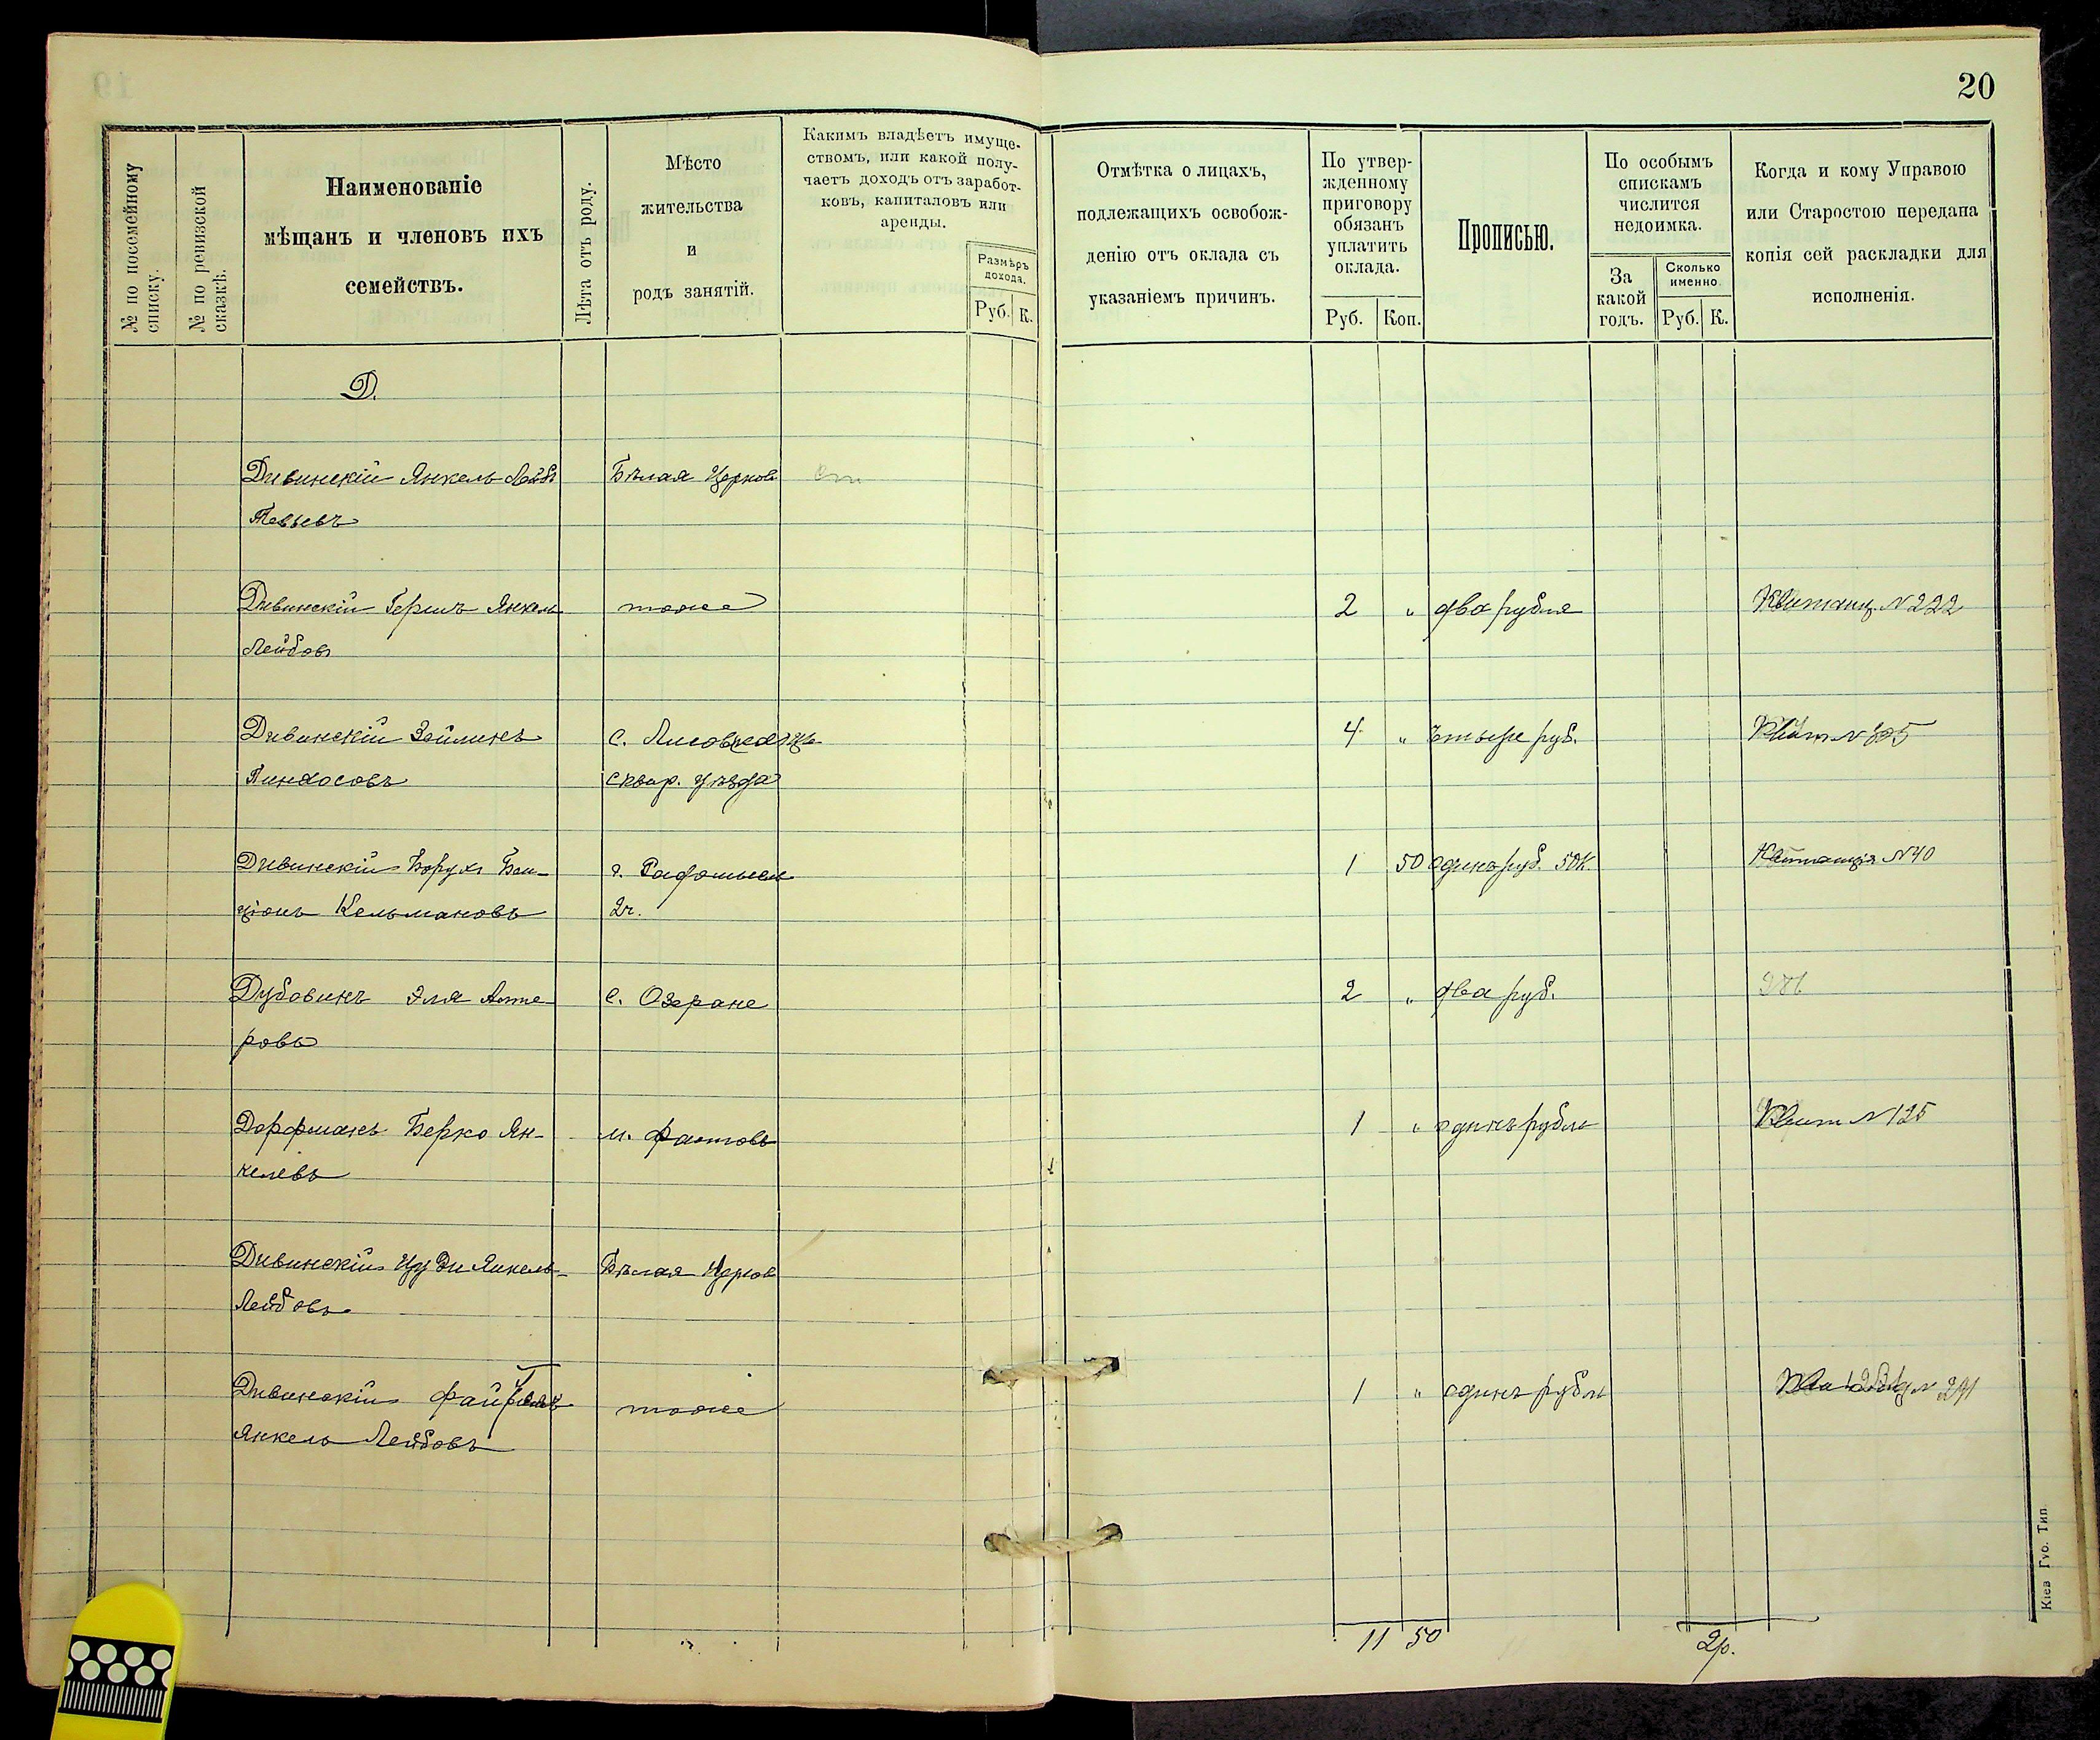 20
№ по посемейному списку.
№ по ревизской сказкѣ.
Наименованіе
мѣщанъ и членовъ ихъ
семействъ.
Лѣта отъ роду.
Мѣсто
жительства
и
родъ занятій.
Какимъ владѣетъ имуще-
ствомъ, или какой полу-
чаетъ доходъ отъ заработ-
ковъ, капиталовъ или
аренды.
Размѣръ
дохода.
Руб. К.
Отмѣтка о лицахъ,
подлежащихъ освобож-
денію отъ оклада съ
указаніемъ причинъ.
По утвер-
жденному
приговору
обязанъ
уплатить
оклада.
Руб. Коп.
Прописью.
По особымъ
спискамъ
числится
недоимка.
За
какой
годъ.
Сколько
именно.
Руб. К.
Когда и кому Управою
или Старостою передана
копія сей раскладки для
исполненія.
Д.
Дивинскій Янкель Лейбъ Бѣлая Церковь
Тевьевъ
Дивинскій Гершъ Янкель тоже 2 " два рубля Квитанц. № 222
Лейбовъ
Дивинскій Зейликъ с. 4 " Чтыре руб. Квит №
Пинхосовъ Сквир. уѣзда
Дивинскій Борухъ Бен- г. Радомысль 1 50 одинъ руб. 50 К. Квитанція № 40
ціонъ Кельмановъ 2 ч.
Дубовикъ Эля Алте- с. Озеране 2 " два руб.
ровъ
Дорфманъ Берко Ян- м. Фастовъ 1 " одинъ рубль Квит № 125
келевъ
Дивинскій Янкель- Бѣлая Церковь
Лейбовъ
Дивинскій Янкель Лейбовъ тоже 1 " одинъ рубль
11 50
2 р.
Кіев Губ. Тип.